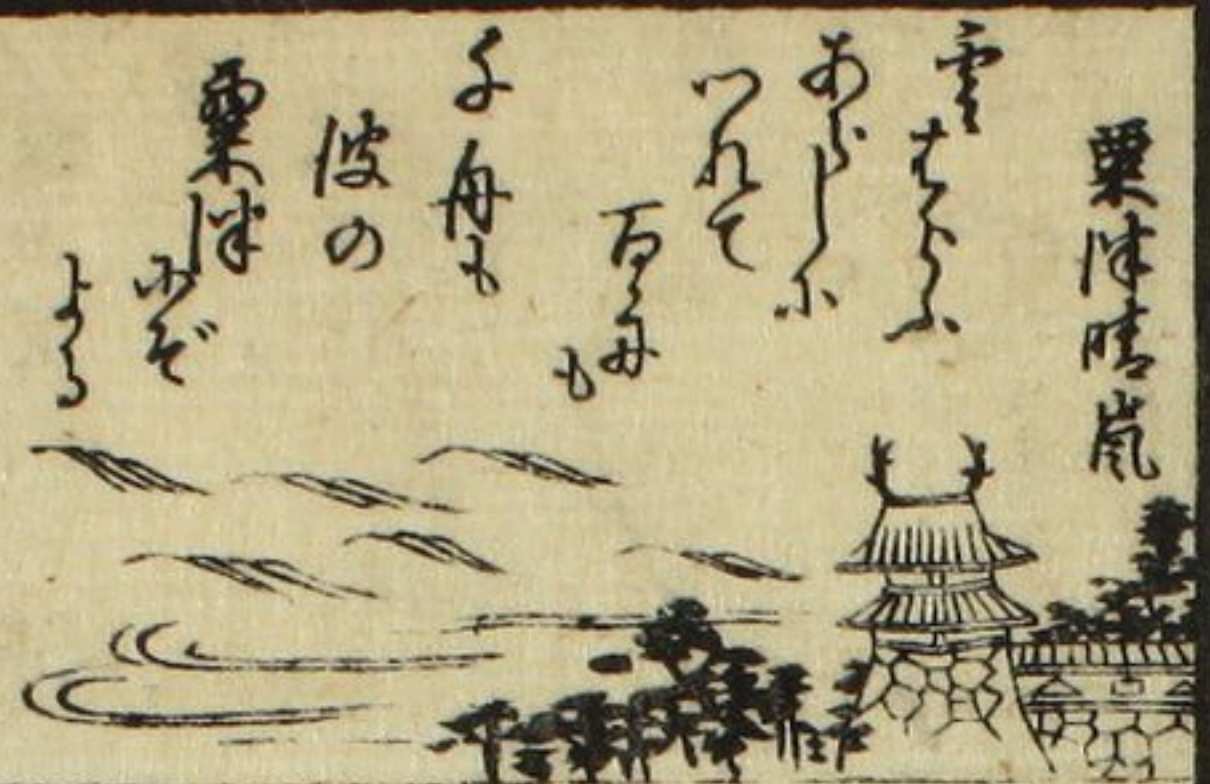 粟津晴嵐
雲はらふ
あらしに
つれて
百舟
も
千舟も
波の
粟津
にぞ
よる